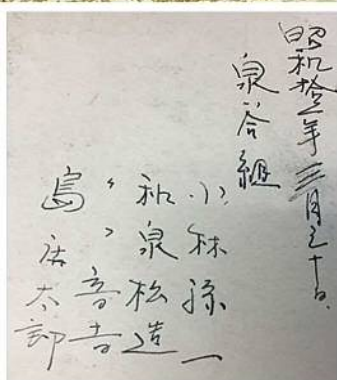 昭和拾壹年三月三十日
泉谷組
小林孫一
和泉松造
〃 〃 音吉
島庄太郎